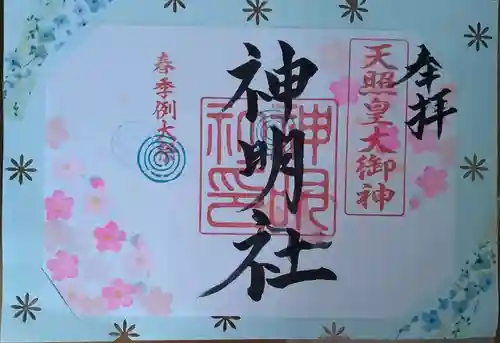 奉拝
天照皇大御神
神明社
神明社印
春季例大祭